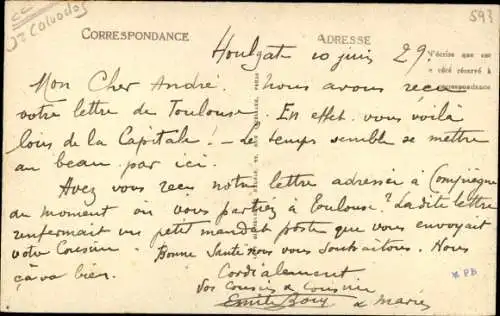 Calvados
593
CORRESPONDANCE
ADRESSE
Houlgate 10 juin 29.
Mon Cher André. Nous avons reçu
votre lettre de Toulouse. En effet vous voilà
loin de la Capitale! - Le temps semble se mettre
au beau par ici.
Avez vous reçu notre lettre adressée à Compiègne
au moment où vous partiez à Toulouse? La dite lettre
renfermait un petit mandat poste que vous envoyait
votre Cousine. Bonne Santé nous vous souhaitons. Nous
ça va bien.
Cordialement
Vos Cousins & Cousine
Emile & Marie
* PB